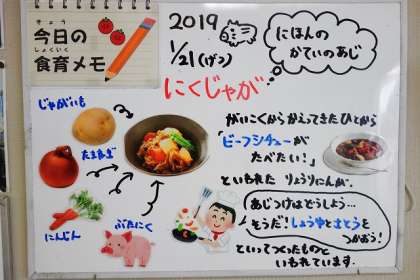 きょう
今日の
しょくいく
食育メモ
2019
1/21(げつ)
にほんの
かていのあじ
にくじゃが
じゃがいも
たまねぎ
にんじん
ぶたにく
がいこくからかえってきたひとから
「ビーフシチューが
たべたい!」
といわれた りょうりにんが、
あじつけはどうしよう…
そうだ!しょうゆとさとうを
つかおう!
といってつくったものと
いわれています。